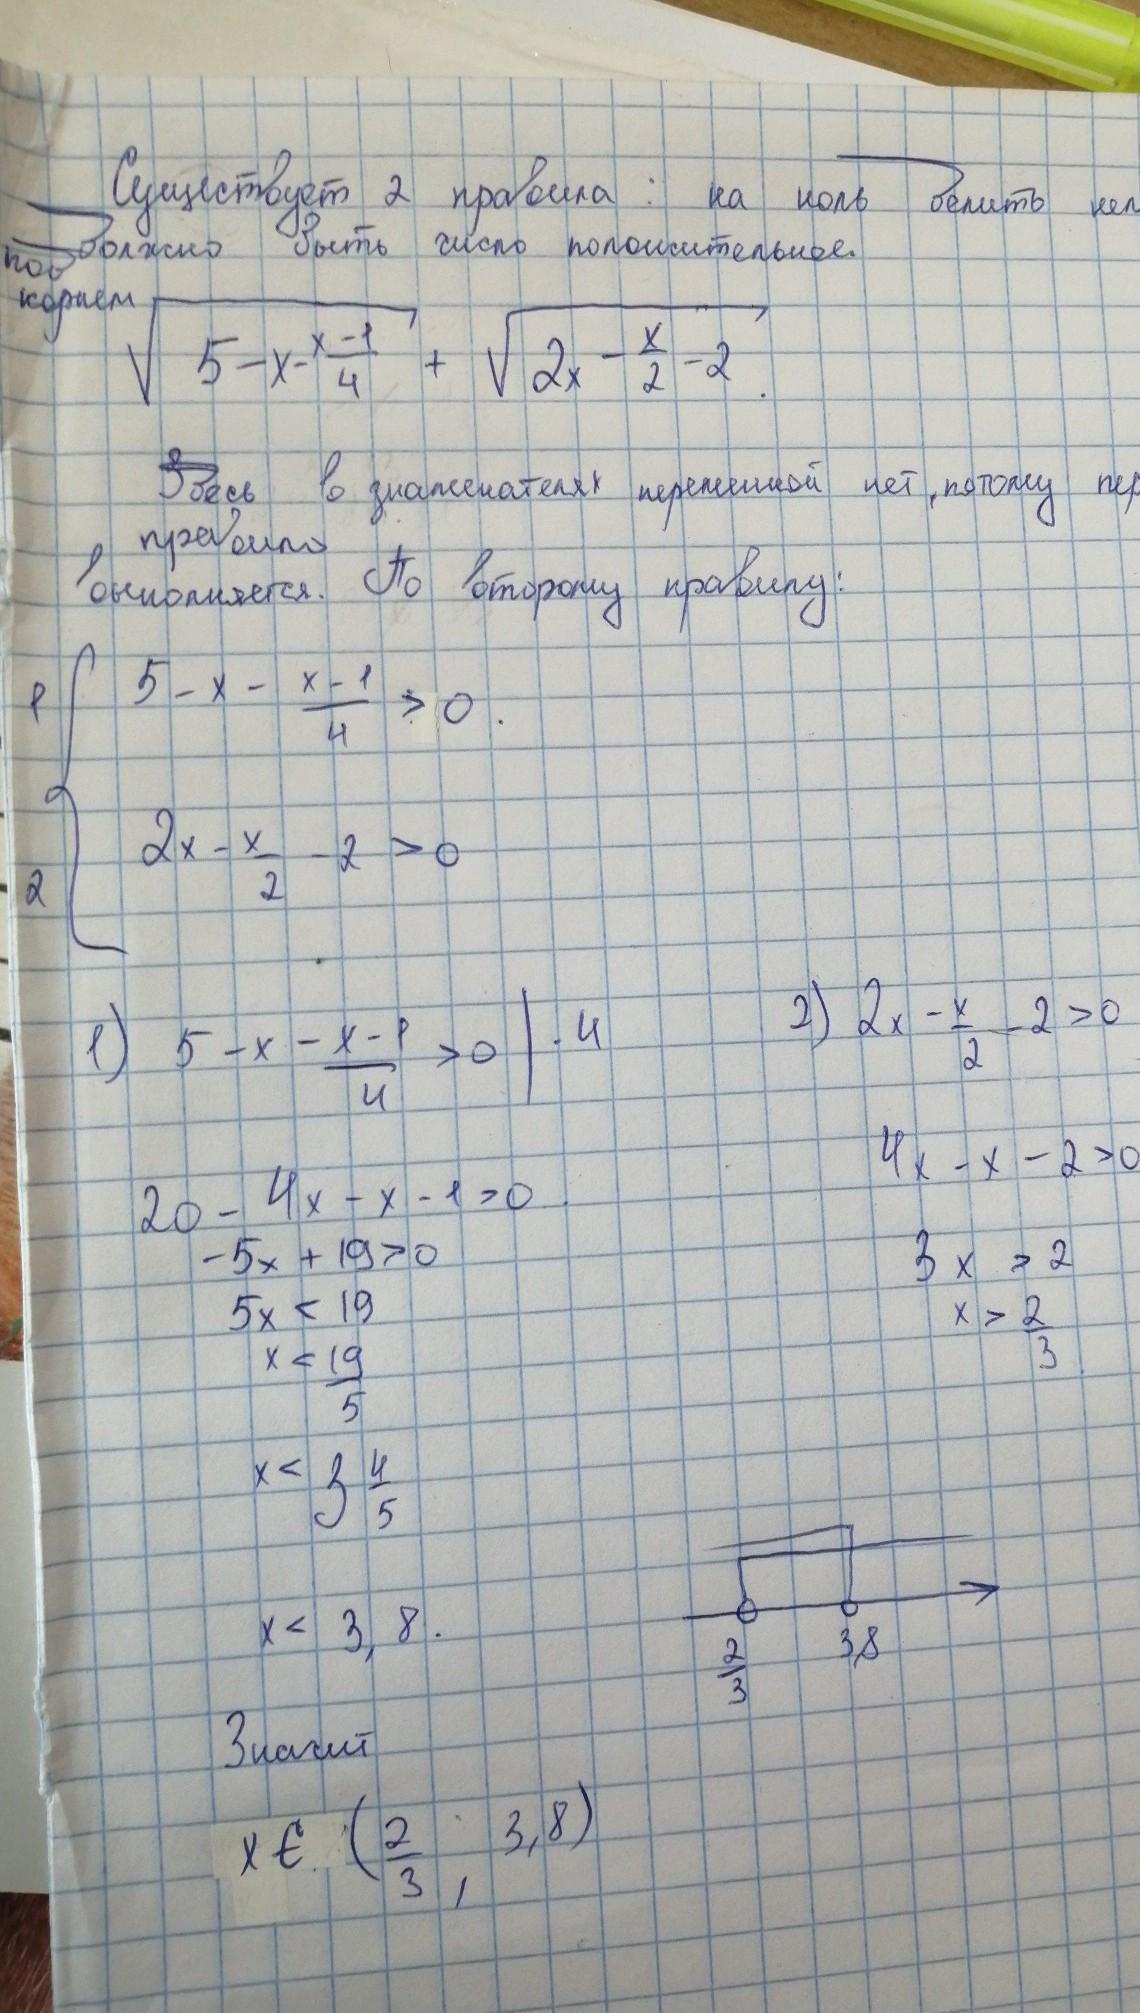 Существует 2 правила: на ноль делить нел
должно быть число положительное.
под
корнем
√(5-x-(x-1)/4) + √(2x-x/2-2).
Здесь в знаменателях переменной нет, потому пер
правило
выполняется. По второму правилу:
1 { 5-x-(x-1)/4 > 0.
2 { 2x-x/2-2 > 0
1) 5-x-(x-1)/4 > 0 | ·4
2) 2x-x/2-2 > 0
20-4x-x-1>0
4x-x-2>0
-5x+19>0
3x > 2
5x < 19
x > 2/3
x < 19/5
x < 3 4/5
x < 3,8.
2/3 3,8
Значит
x ∈ (2/3; 3,8)